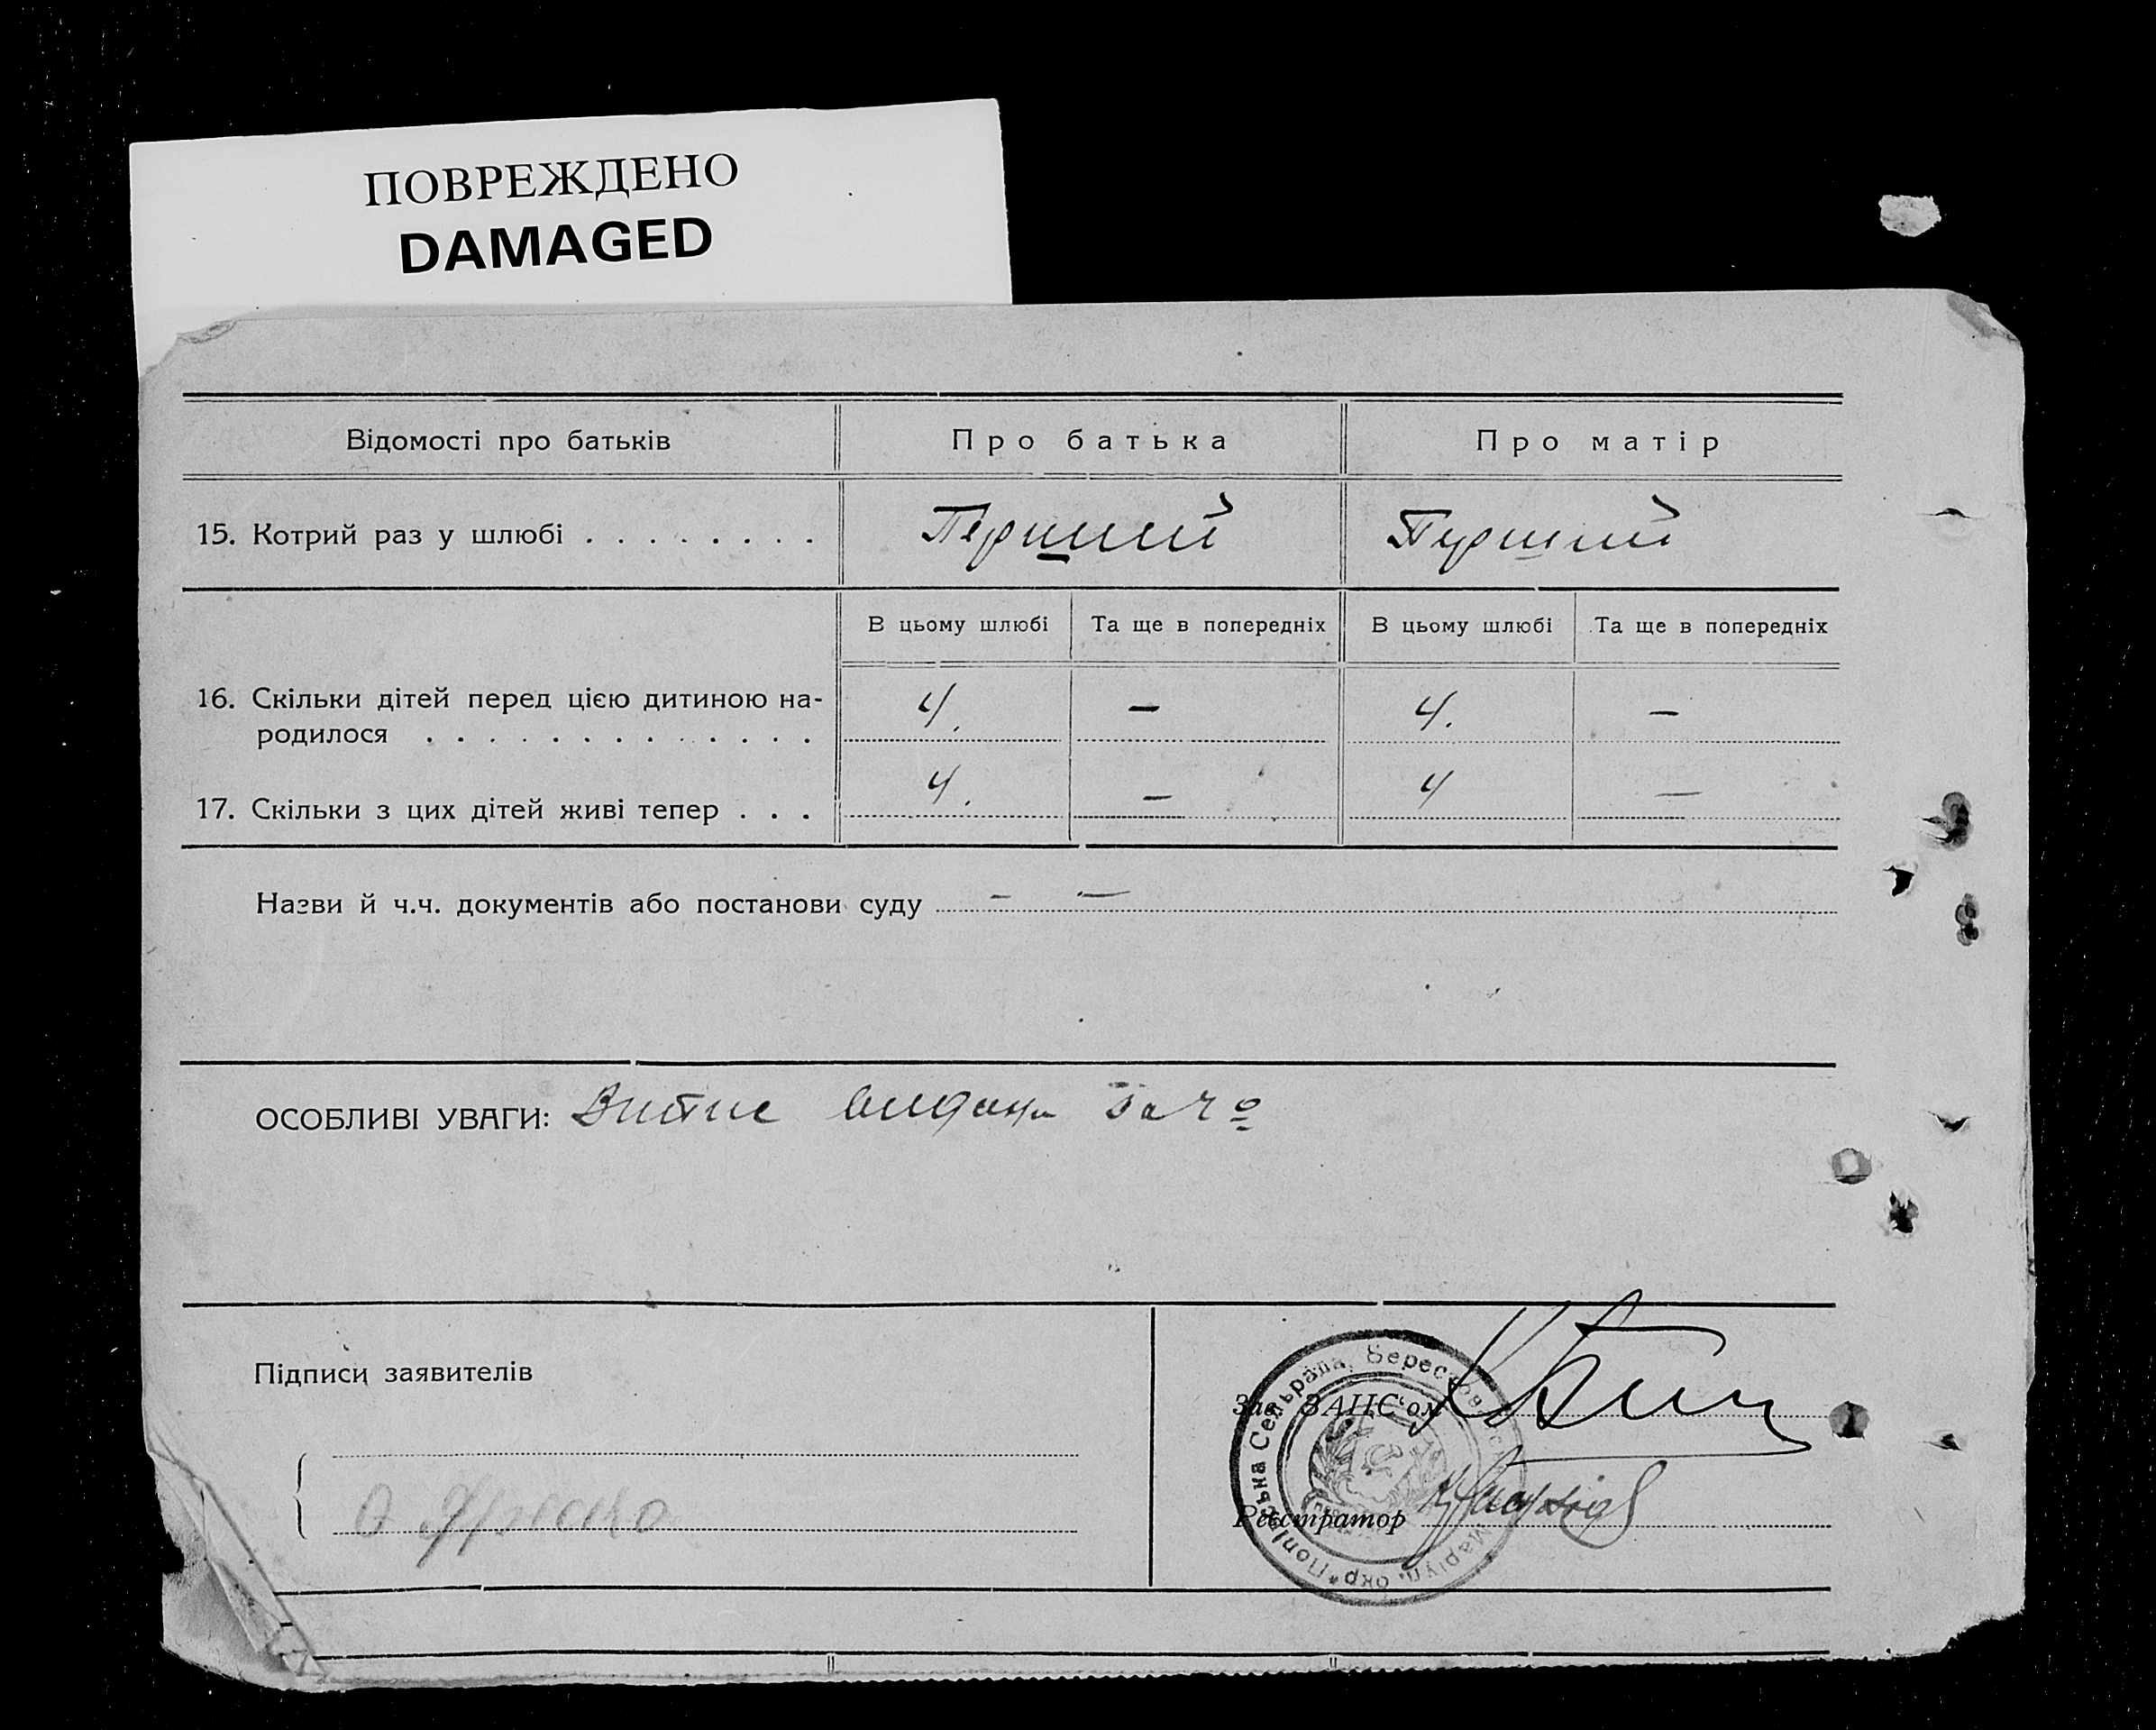 ПОВРЕЖДЕНО
DAMAGED
Відомості про батьків Про батька Про матір
15. Котрий раз у шлюбі . . . . . . . . Перший Перший
В цьому шлюбі Та ще в попередніх В цьому шлюбі Та ще в попередніх
16. Скільки дітей перед цією дитиною на-
родилося . . . . . . . . . . . . . 4. — 4. —
17. Скільки з цих дітей живі тепер . . . 4. — 4 —
Назви й ч.ч. документів або постанови суду — —
ОСОБЛИВІ УВАГИ: Витяг видано за ч
Підписи заявителів
Зав. ЗАЦС'ом
Реєстратор
Сельрада, Берестов
Маріуп. окр.